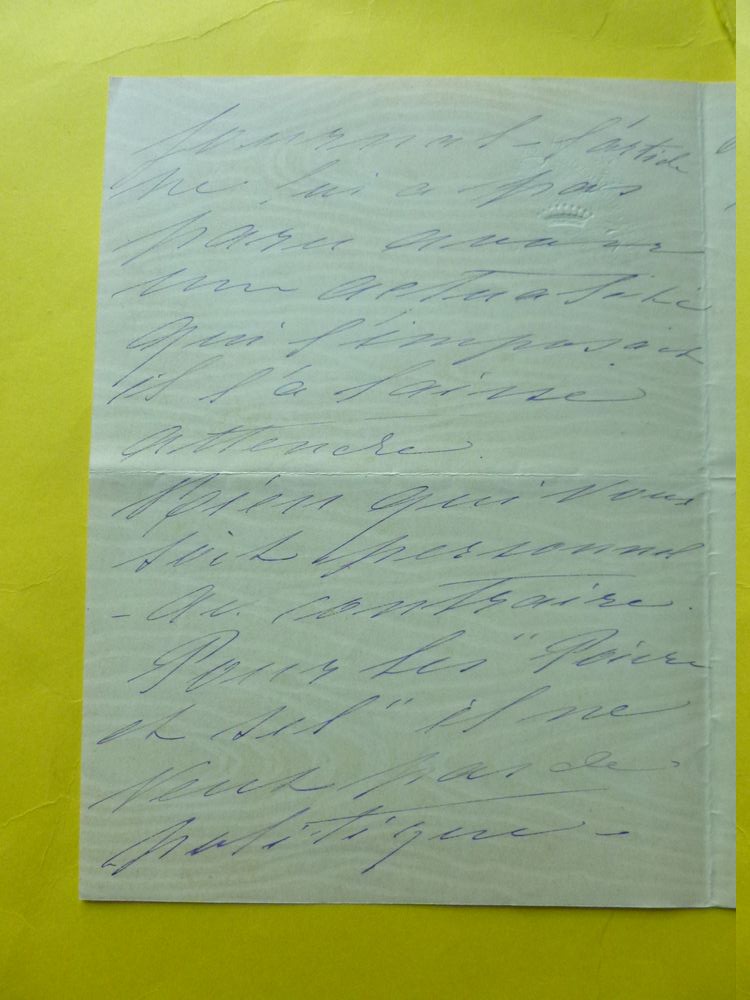 journal - l'article
ne lui a pas
paru avoir
une actualité
qui l'imposait
il l'a laissé
attendre.
Rien qui vous
soit personnel
- au contraire.
Pour les "Poivre
et sel" il ne
veut pas de
politique -